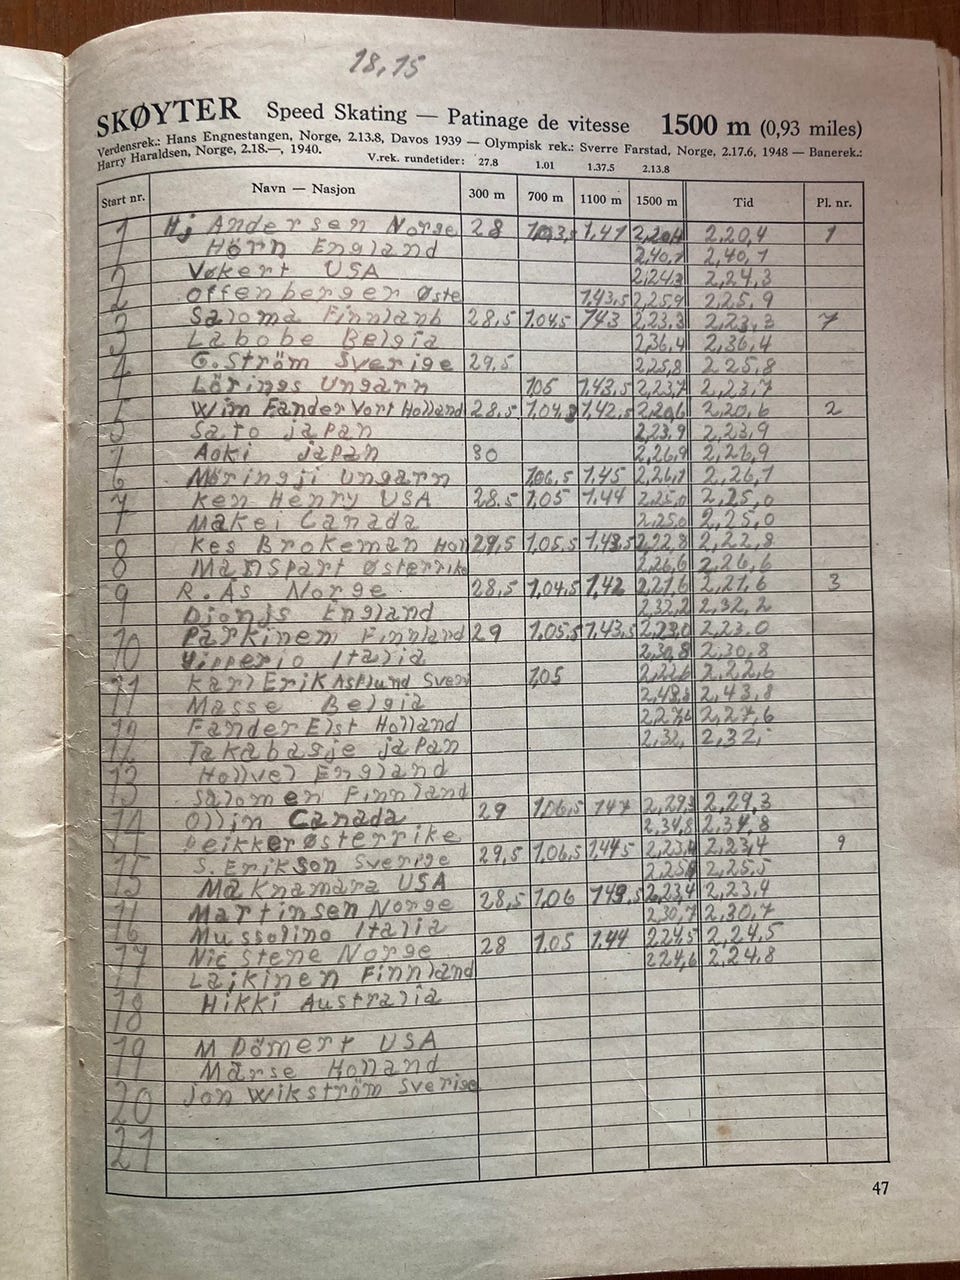 18,15
SKØYTER Speed Skating — Patinage de vitesse 1500 m (0,93 miles)
Verdensrek.: Hans Engnestangen, Norge, 2.13.8, Davos 1939 — Olympisk rek.: Sverre Farstad, Norge, 2.17.6, 1948 — Banerek.:
Harry Haraldsen, Norge, 2.18.—, 1940. V.rek. rundetider: 27.8 1.01 1.37.5 2.13.8
Start nr. Navn — Nasjon 300 m 700 m 1100 m 1500 m Tid Pl. nr.
1 Hj Andersen Norge 28 1,41 2,20,4 2,20,4 1
1 Hörn England 2,40,1 2,40,1
2 Vøkert USA 2,24,3 2,24,3
2 Offenberger Øste 1,43,5 2,25,9 2,25,9
3 Saloma Finnlanb 28,5 1,04,5 1,43 2,23,3 2,23,3 7
3 Labobe Belgia 2,36,4 2,36,4
4 G.Ström Sverige 29,5 2,25,8 2 25,8
4 Lörings Ungarn 1,05 1,43,5 2,23,7 2,23,7
5 Wim Fander Vort Holland 28,5 1,04, 1,42,5 2,20,6 2,20,6 2
5 Sato japan 2,23,9 2,23,9
Aoki japan 30 2,26,9 2,26,9
6 Möringji Ungarn 1,06,5 1,45 2,26,1 2,26,1
7 Ken Henry USA 28.5 1,05 1.44 2,25,0 2,25,0
7 Makei Canada 2,25,0 2,25,0
8 Kes Brokeman Hol 29,5 1,05,5 1,43,5 2,22,8 2,22,8
8 Manspart Østerrike 2,26,6 2,26,6
9 R.Ås Norge 28,5 1,04,5 1,42 2,21,6 2,21,6 3
9 Dionjs England 2,32,2 2,32,2
10 Parkinem Finnland 29 1,05,5 1,43,5 2,23,0 2,23,0
10 Italia 2,30,8 2,30,8
11 Karl Erik Asplund Sveri 1,05 2,22,6 2,22,6
11 Masse Belgia 2,43,8
12 Fander Elst Holland 2,27,6 2,27,6
12 Takabasje japan 2,32, 2,32,
13 Hollvel England
13 Salomen Finnland
14 Ollin Canada 29 1,06,5 1 47 2,29,3 2,29,3
14 Østerrike 2,34,8 2,34,8
15 S. Erikson Sverige 29,5 1,06,5 1,44,5 2,23,4 2,23,4 9
15 Maknamara USA 2,25,5
16 Martinsen Norge 28,5 1,06 2,23,4 2,23,4
16 Mussolino Italia 2,30,7 2,30,7
17 Nic Stene Norge 28 1.05 1.44 2,24,5 2,24,5
17 Lajkinen Finnland 2 24,8
18 Hikki Australia
18
19 M Dömert USA
19 Märse Holland
20 Jon Wikström Sverige
21
47